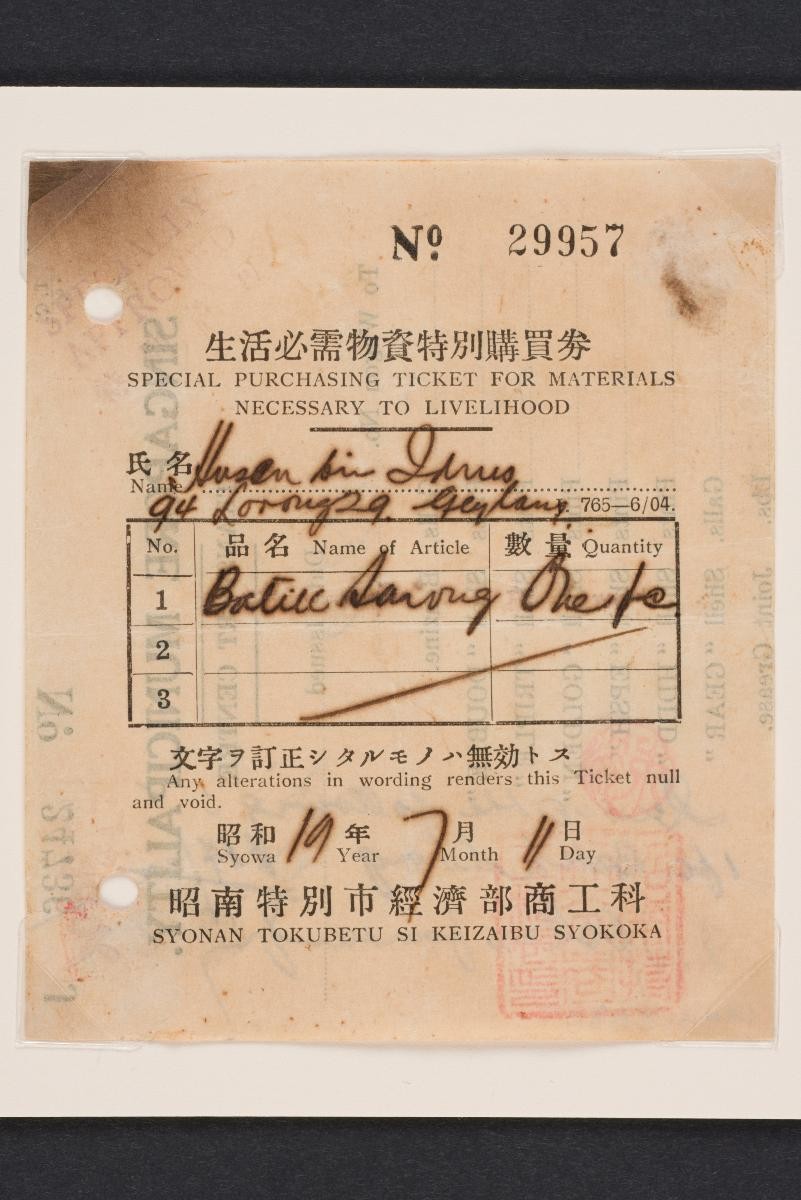 Nº 29957
生活必需物資特別購買劵
SPECIAL PURCHASING TICKET FOR MATERIALS
NECESSARY TO LIVELIHOOD
氏名
Name Husen bin Idrus
94 Lorong 29. Geylang. 765—6/04.
No. 品名 Name of Article 數量 Quantity
1 Batik Sarong One
2
3
文字ヲ訂正シタルモノハ無効トス
Any alterations in wording renders this Ticket null
and void.
昭和 19 年 7 月 11 日
Syowa Year Month Day
昭南特別市經濟部商工科
SYONAN TOKUBETU SI KEIZAIBU SYOKOKA